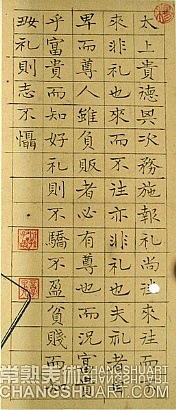 太上貴德其次務施報礼尚往來往而
來非礼也來而不往亦非礼也夫礼者自
卑而尊人雖負販者必有尊也而況富
乎富貴而知好礼則不驕不盈貧賤而
好礼則志不懾
常熟美術
CHANGSHUART